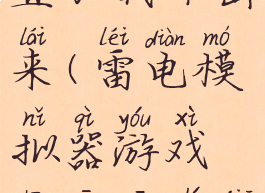 lái léi diàn mó
来(雷电模
nǐ qì yóu xì
拟器游戏